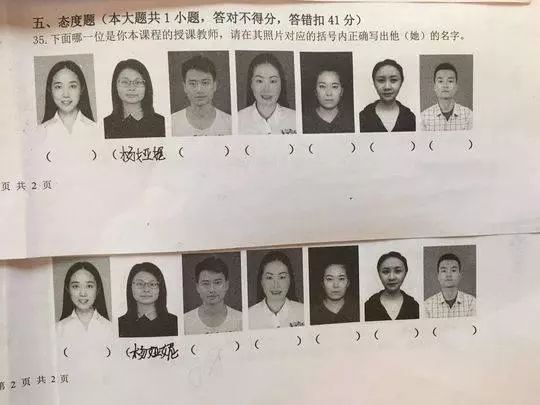 五、态度题（本大题共 1 小题，答对不得分，答错扣 41 分）
35. 下面哪一位是你本课程的授课教师，请在其照片对应的括号内正确写出他（她）的名字。
（ ）（杨 ）（ ）（ ）（ ）（ ）（ ）
页 共 2 页
（ ）（杨娅妮 ）（ ）（ ）（ ）（ ）（ ）
第 2 页 共 2 页